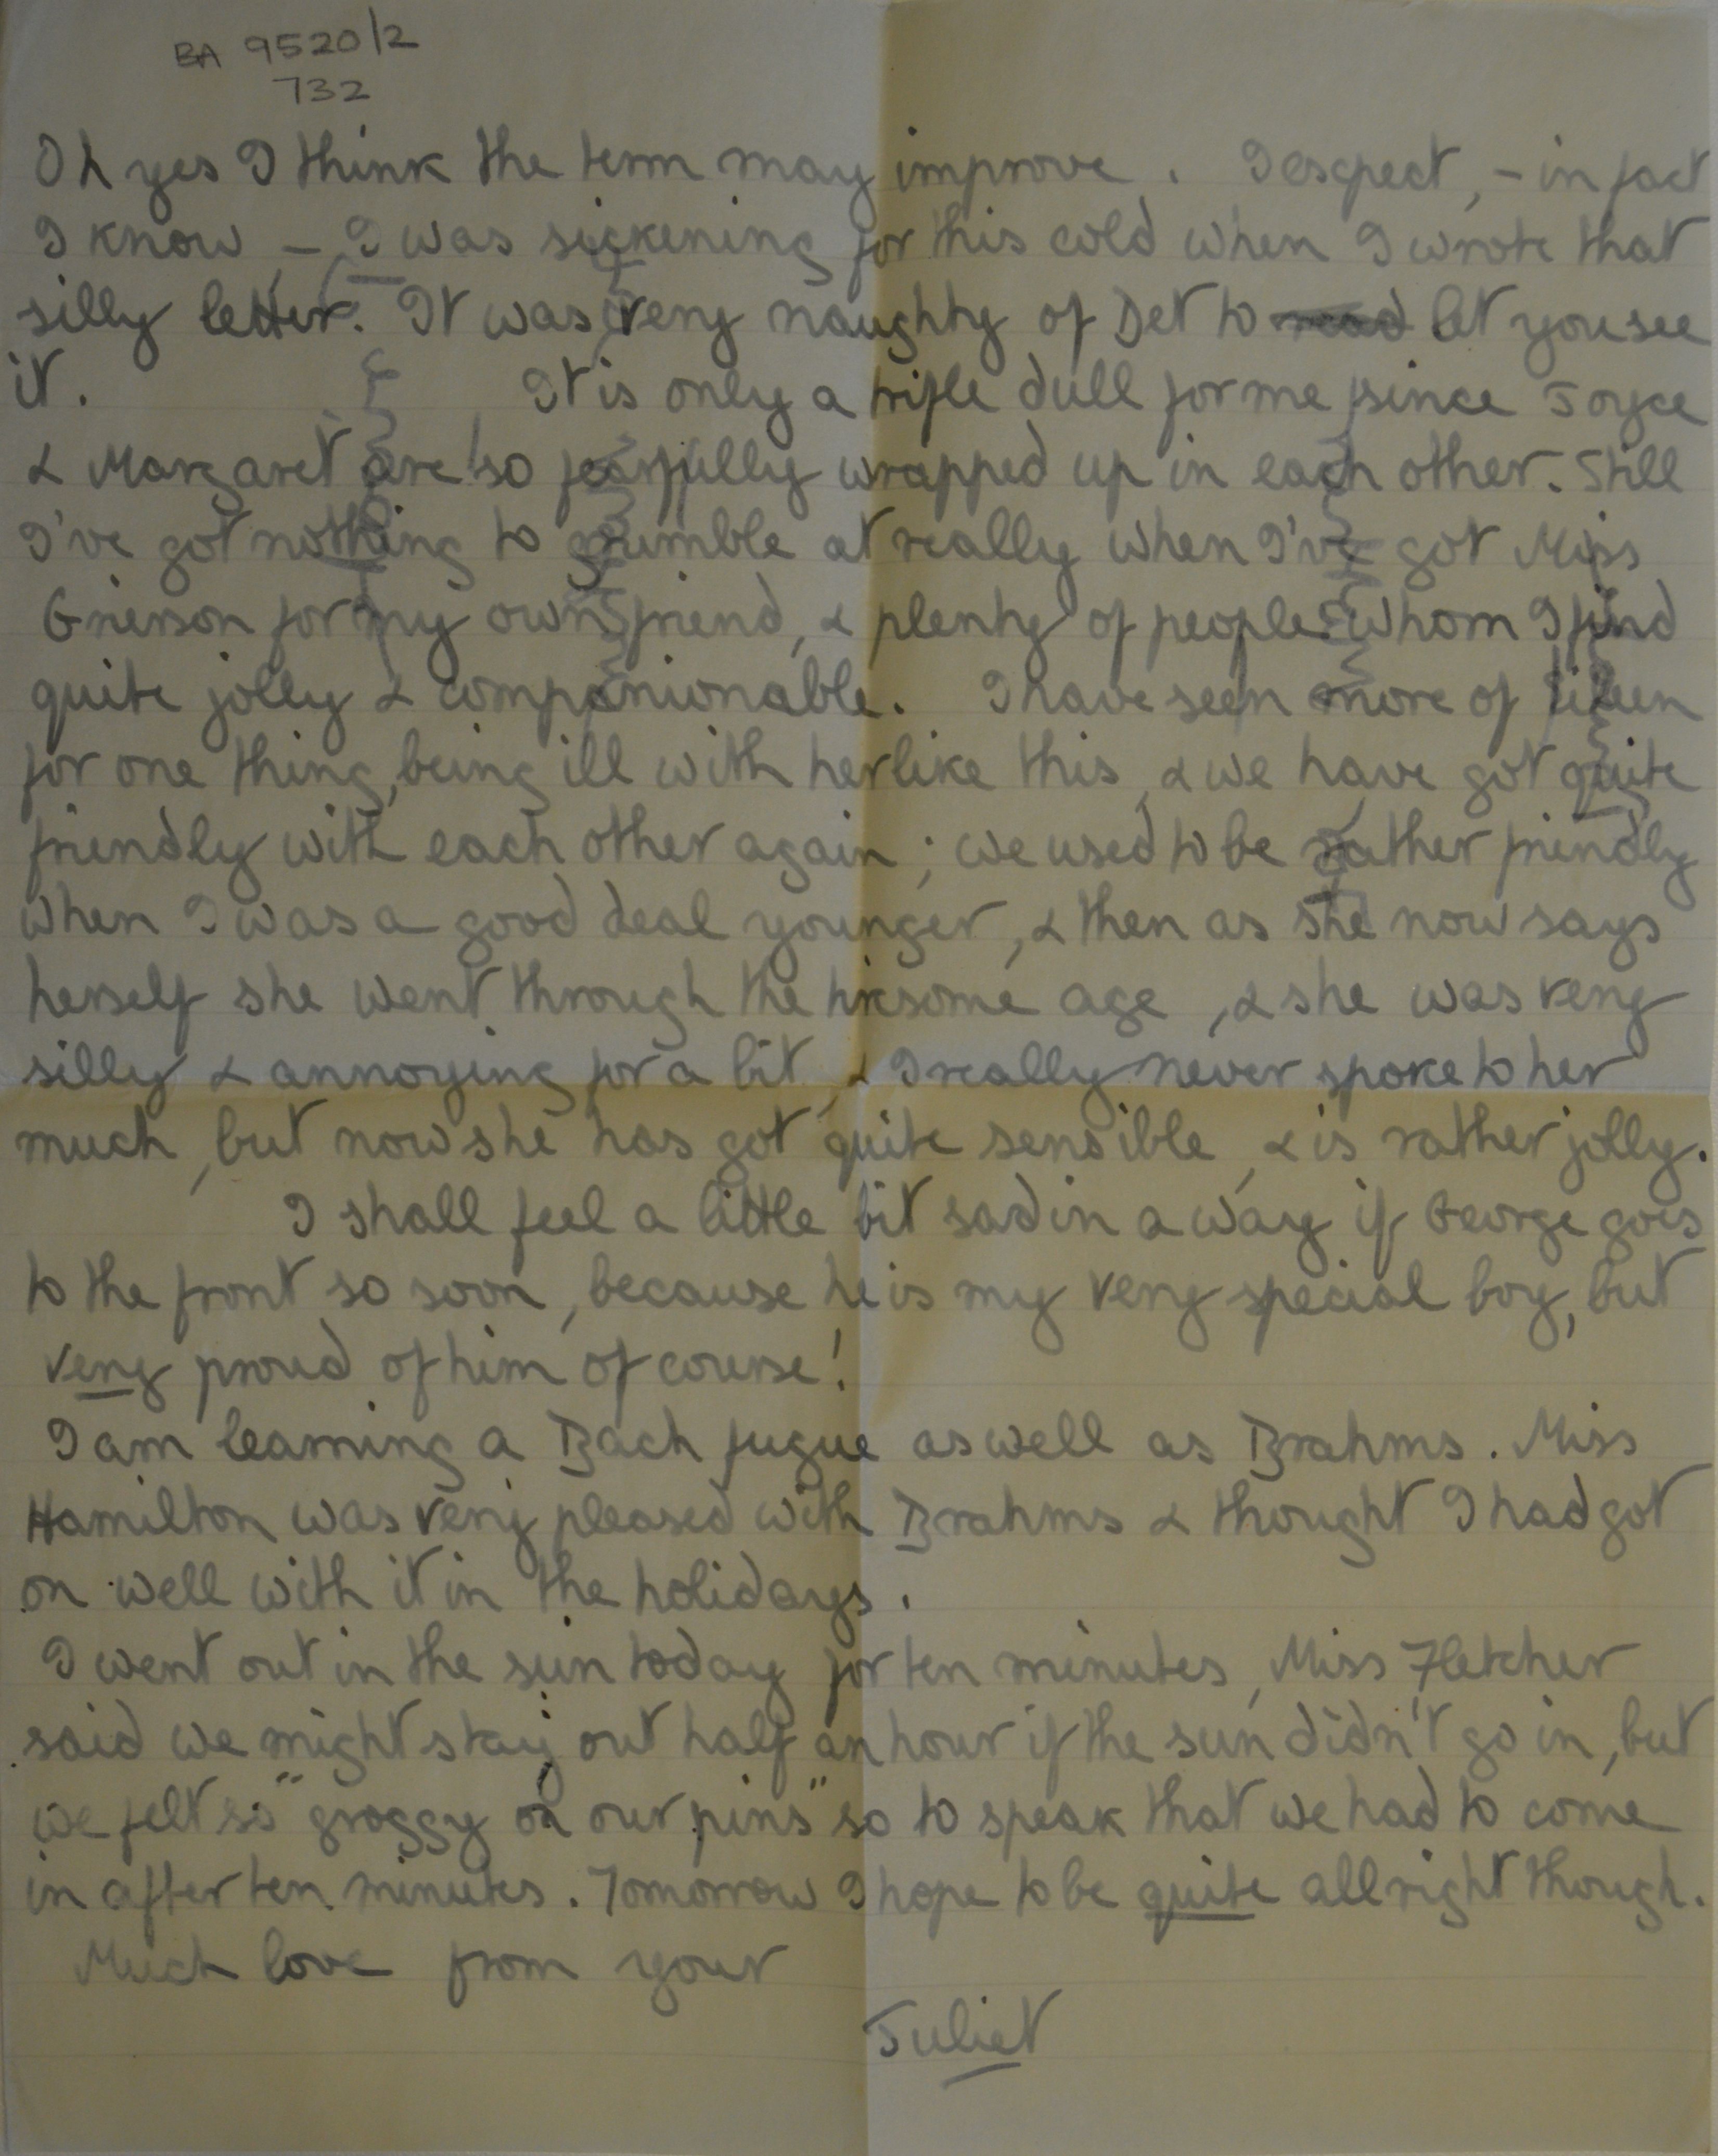 BA 9520/2
732
Oh yes I think the term may improve. I expect, - in fact
I know, - I was sickening for this cold when I wrote that
silly letter. It was very naughty of Det to read let you see
it. It is only a trifle dull for me since Joyce
& Margaret are so fearfully wrapped up in each other. Still
I've got nothing to grumble at really when I've got Miss
Grierson for my own friend, & plenty of people whom I find
quite jolly & companionable. I have seen more of Eileen
for one thing, being ill with her like this, & we have got quite
friendly with each other again; we used to be rather friendly
when I was a good deal younger, & then as she now says
herself she went through the tiresome age, & she was very
silly & annoying for a bit, & I really never spoke to her
much, but now she has got quite sensible, & is rather jolly.
I shall feel a little bit sad in a way if George goes
to the front so soon, because he is my very special boy, but
very proud of him of course!
I am learning a Bach fugue as well as Brahms. Miss
Hamilton was very pleased with Brahms & thought I had got
on well with it in the holidays.
I went out in the sun today for ten minutes, Miss Fletcher
said we might stay out half an hour if the sun didn't go in, but
we felt so "groggy on our pins" so to speak that we had to come
in after ten minutes. Tomorrow I hope to be quite all right though.
Much love from your
Juliet